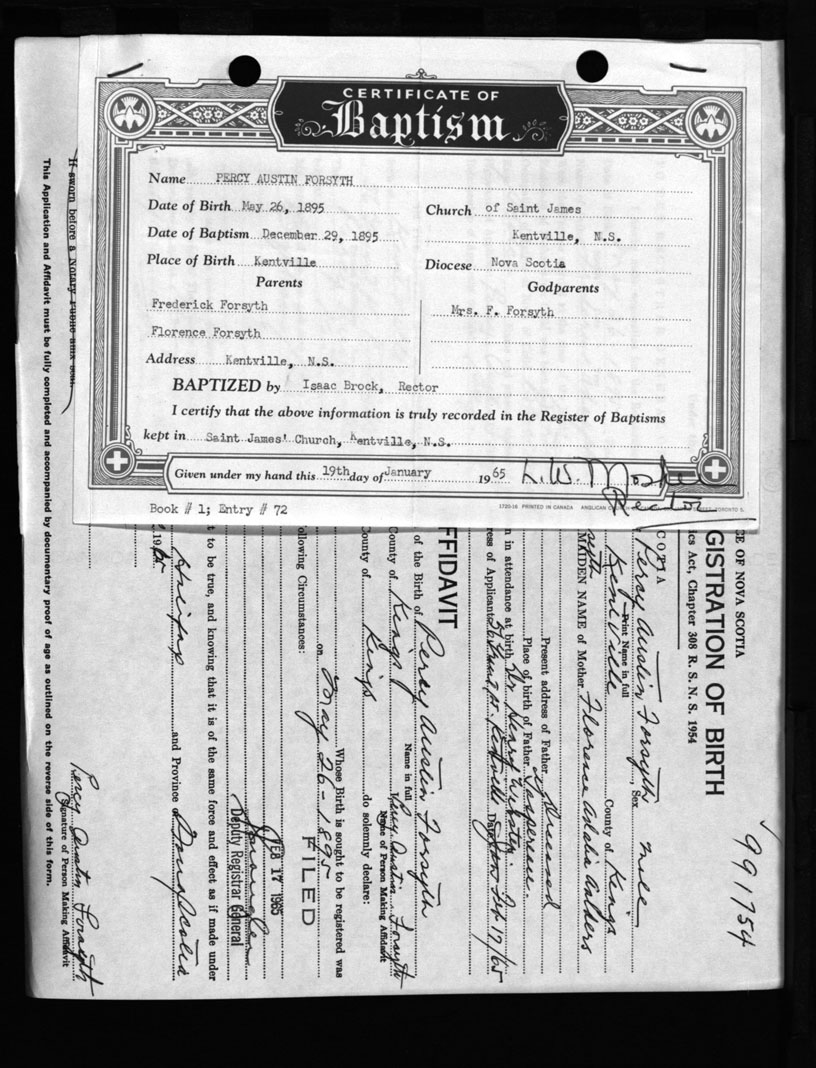 CERTIFICATE OF
Baptism
Name PERCY AUSTIN FORSYTH
Date of Birth May 26, 1895
Date of Baptism December 29, 1895
Place of Birth Kentville
Church of Saint James
Kentville, N.S.
Diocese Nova Scotia
Parents
Frederick Forsyth
Florence Forsyth
Godparents
Mrs. F. Forsyth
Address Kentville, N.S.
BAPTIZED by Isaac Brock, Rector
I certify that the above information is truly recorded in the Register of Baptisms
kept in Saint James' Church, Kentville, N.S.
Given under my hand this 19th day of January 1965 L.W. Mosher
Rector
Book # 1; Entry # 72
1720-16 PRINTED IN CANADA ANGLICAN TORONTO 5,
991754
CE OF NOVA SCOTIA
GISTRATION OF BIRTH
ics Act, Chapter 308 R. S. N. S. 1954
COTIA
Percy Austin Forsyth Sex Male
Print Name in full
Kentville County of Kings
MAIDEN NAME of Mother Florence
Present address of Father Deceased
Place of birth of Father
n in attendance at birth Dr Henry Webster
ress of Applicant Kentville Date Feb 17/65
FFIDAVIT
of the Birth of Percy Austin Forsyth
Name in full
County of Kings Percy Austin Forsyth
Name of Person Making Affidavit
County of Kings do solemnly declare:
Whose Birth is sought to be registered was
on May 26-1895
ollowing Circumstances:
FILED
FEB 17 1965
Deputy Registrar General
t to be true, and knowing that it is of the same force and effect as if made under
Halifax and Province of Nova Scotia
19 65
Percy Austin Forsyth
Signature of Person Making Affidavit
If sworn before a Notary Public affix seal.
This Application and Affidavit must be fully completed and accompanied by documentary proof of age as outlined on the reverse side of this form.